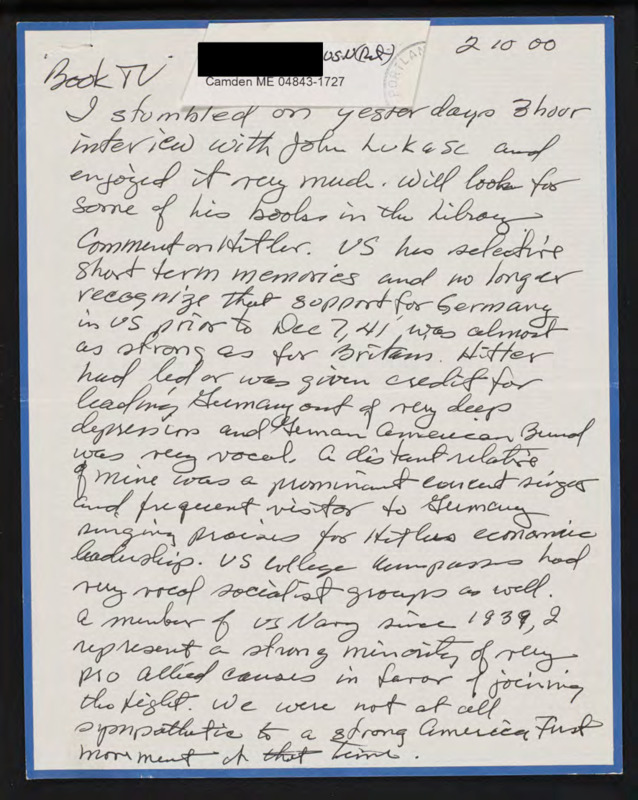 USN(Ret)
2 10 00
Camden ME 04843-1727
PORTLAN
Book TV
I stumbled on yesterdays 3 hour
interview with John Lukasc and
enjoyed it very much. Will look for
some of his books in the Library
Comment on Hitler. US has selective
short term memories and no longer
recognize that support for Germany
in US prior to Dec 7, 41, was almost
as strong as for Britain. Hitler
had led or was given credit for
leading Germany out of very deep
depression and German American Bund
was very vocal. A distant relative
of mine was a prominant concert singer
and frequent visitor to Germany
singing praises for Hitlers economic
leadership. US college campasses had
very vocal socialist groups as well.
A member of US Navy since 1939, I
represent a strong minority of very
pro allied causes in favor of joining
the fight. We were not at all
sympathetic to a strong America First
movement at that time.